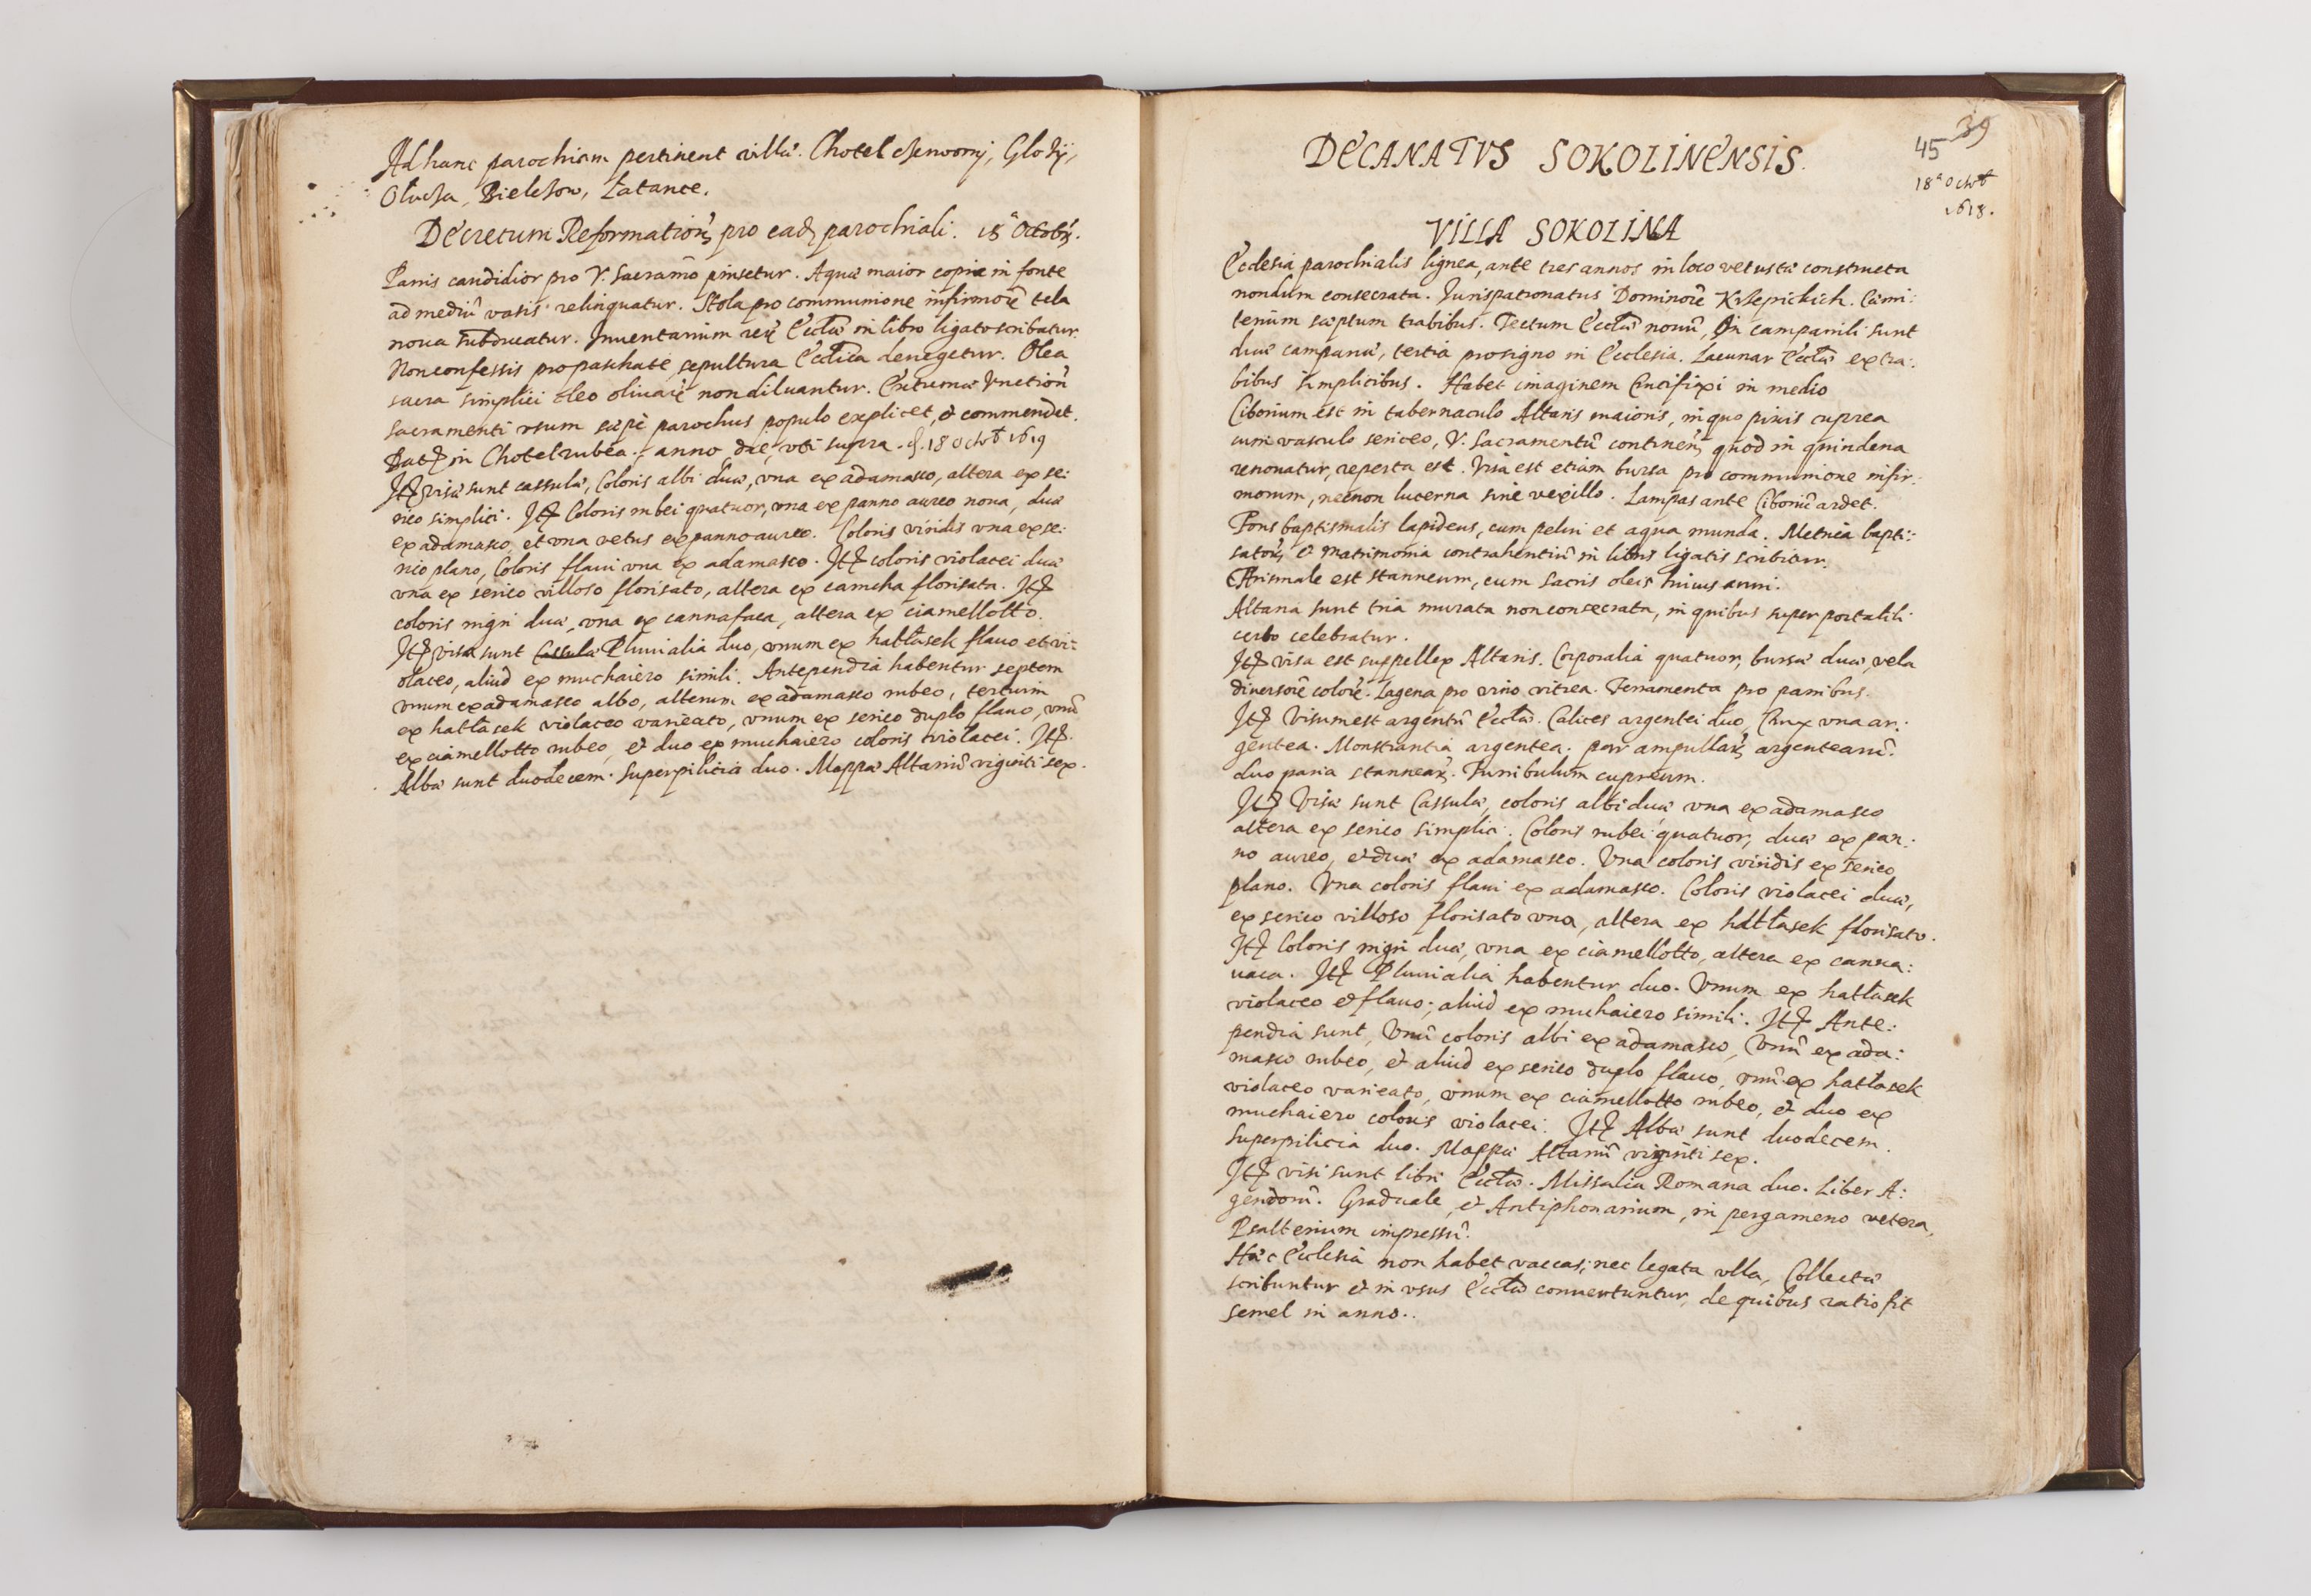 Ad hanc parochiam pertinent villæ. Chotel czerwony, Glozÿ,
Olucha, Bieleſow, Łatance.
Decretum Reformationis pro eadẽ parochiali. 18ª Octobris.
Panis candidior pro V. Sacramẽto pinsetur. Aquæ maior copia in fonte
ad mediũ vasis relinquatur. Stola pro communione infirmorũ tela
noua subducatur. Inuentarium rerũ Ecclæ in libro ligato scribatur.
Nonconfessis pro paschate, sepultura Ecclica denegetur. Olea
sacra simplici oleo oliuarũ non diluantur. Extremæ Vnctionis
sacramenti vsum sæpe parochus populo explicet, & commendet.
Datũ in Chotel rubea. anno, die, vti supra. 18 Octob 1619
Itẽ visæ sunt cassulæ, Coloris albi duæ, vna ex adamasco, altera ex se:
rico simplici. Itẽ Coloris rubei quatuor, vna ex panno aureo noua, duæ
ex adamasco, et vna vetus ex panno aureo. Coloris viridis vna ex se:
rico plano, Coloris flaui vna ex adamasco. Itẽ coloris violacei duæ
vna ex serico villoso florisato, altera ex camcha florisata. Itẽ
coloris nigri duæ, vna ex cannafaca, altera ex ciamellotto.
Itẽ visa sunt Cassulæ Pluuialia duo, vnum ex hatłasek flauo et vi:
olaceo, aliud ex muchaiero simili. Antependia habentur septem
vnum ex adamasco albo, alterum ex adamasco rubeo, tertium
ex hatłasek violaceo varieato, vnum ex serico duplo flauo, vnũ
ex ciamellotto rubeo, & duo ex muchaiero coloris violacei. Itẽ
Albæ sunt duodecem. Superpilicia duo. Mappæ Altariũ viginti sex.
DECANATVS SOKOLINENSIS.
45 39
18ª Octob
1618.
VILLA SOKOLINA
Ecclesia parochialis lignea, ante tres annos in loco vetustæ constructa
nondum consecrata. Iurispatronatus Dominorũ Krzepickich. Cæmi:
terium sæptum trabibus. Tectum Ecclæ nouũ, In campanili sunt
duæ campanæ, tertia pro signo in Ecclesia. Lacunar Ecclæ ex tra:
bibus simplicibus. Habet imaginem Crucifixi in medio
Ciborium est in tabernaculo Altaris maioris, in quo pixis cuprea
cum vasculo sericeo, V. Sacramentũ continens, quod in quindena
renouatur, reperta est. Visa est etiam bursa pro communione infir:
morum, necnon lucerna sine vexillo. Lampas ante Ciboriũ ardet.
Fons baptismalis lapideus, cum pelui et aqua munda. Metrica bapti:
satorũ & matrimonia contrahentiũ in libris ligatis scribitur.
Chrismale est stanneum, cum sacris oleis huius anni.
Altaria sunt tria murata non consecrata, in quibus super portatili
certo celebratur.
Itẽ visa est suppellex Altaris. Corporalia quatuor, bursæ duæ, vela
diuersorũ colorũ. Lagena pro vino vitrea. Ferramenta pro panibus.
Itẽ Visum est argentũ Ecclæ. Calices argentei duo, Crux vna ar:
gentea. Monstrantia argentea. par ampullarũ argentearũ.
duo paria stannearũ. Turribulum cupreum.
Itẽ Visæ sunt Cassulæ, coloris albi duæ vna ex adamasco
altera ex serico simplici. Coloris rubei quatuor, duæ ex pan:
no aureo, et duæ ex adamasco. Vna coloris viridis ex serico
plano. Vna coloris flaui ex adamasco. Coloris violacei duæ,
ex serico villoso florisato vna, altera ex hatłasek florisato.
Itẽ Coloris nigri duæ, vna ex ciamellotto, altera ex canna:
uaca. Itẽ Pluuialia habentur duo. Vnum ex hatłasek
violaceo & flauo; aliud ex muchaiero simili. Itẽ Ante:
pendia sunt, Vnũ coloris albi ex adamasco, Vnũ ex ada:
masco rubeo, & aliud ex serico duplo flauo, vnũ ex hatłasek
violaceo varieato, vnum ex ciamellotto rubeo, & duo ex
muchaiero coloris violacei. Itẽ Albæ sunt duodecem.
Superpilicia duo. Mappæ Altariũ viginti sex.
Itẽ visi sunt libri Ecclæ. Missalia Romana duo. Liber A:
gendorũ. Graduale, & Antiphonarium, in pergameno vetera,
Psalterium impressũ.
Hæc Ecclesia non habet vaccas, nec legata vlla, Collectæ
scribuntur & in vsus Ecclæ conuertuntur, de quibus ratio fit
semel in anno.